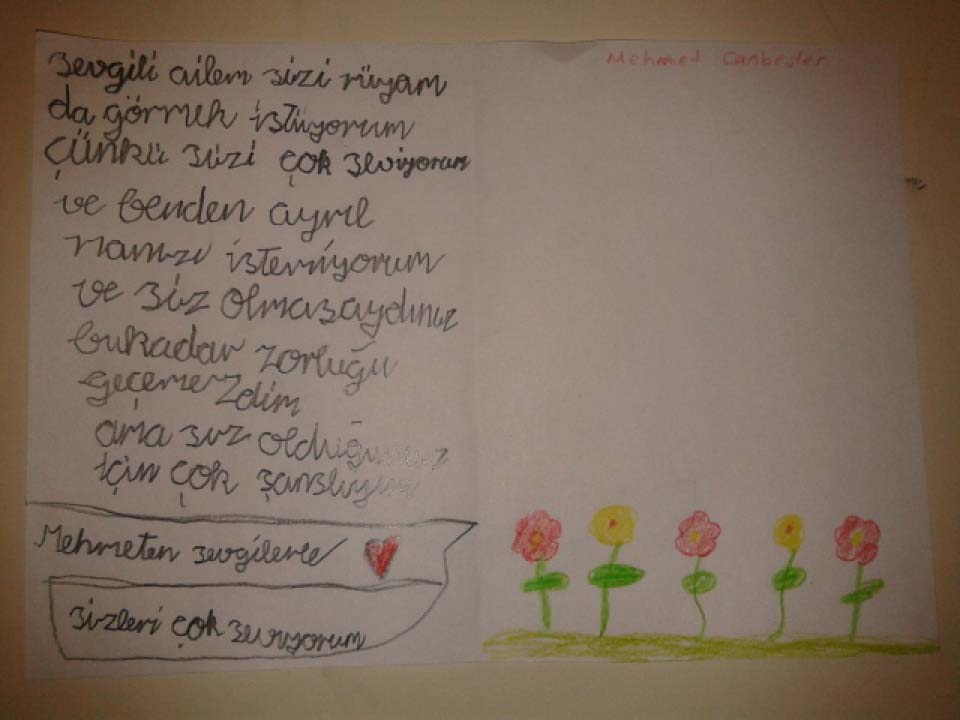 Sevgili ailem sizi rüyam
da görmek istiyorum
çünkü sizi çok seviyorum
ve benden ayrıl
manızı istemiyorum
ve siz olmasaydınız
bukadar zorluğu
geçemezdim
ama siz olduğunuz
için çok şanslıyım
Mehmeten sevgilerle
sizleri çok seviyorum
Mehmet Canbesler